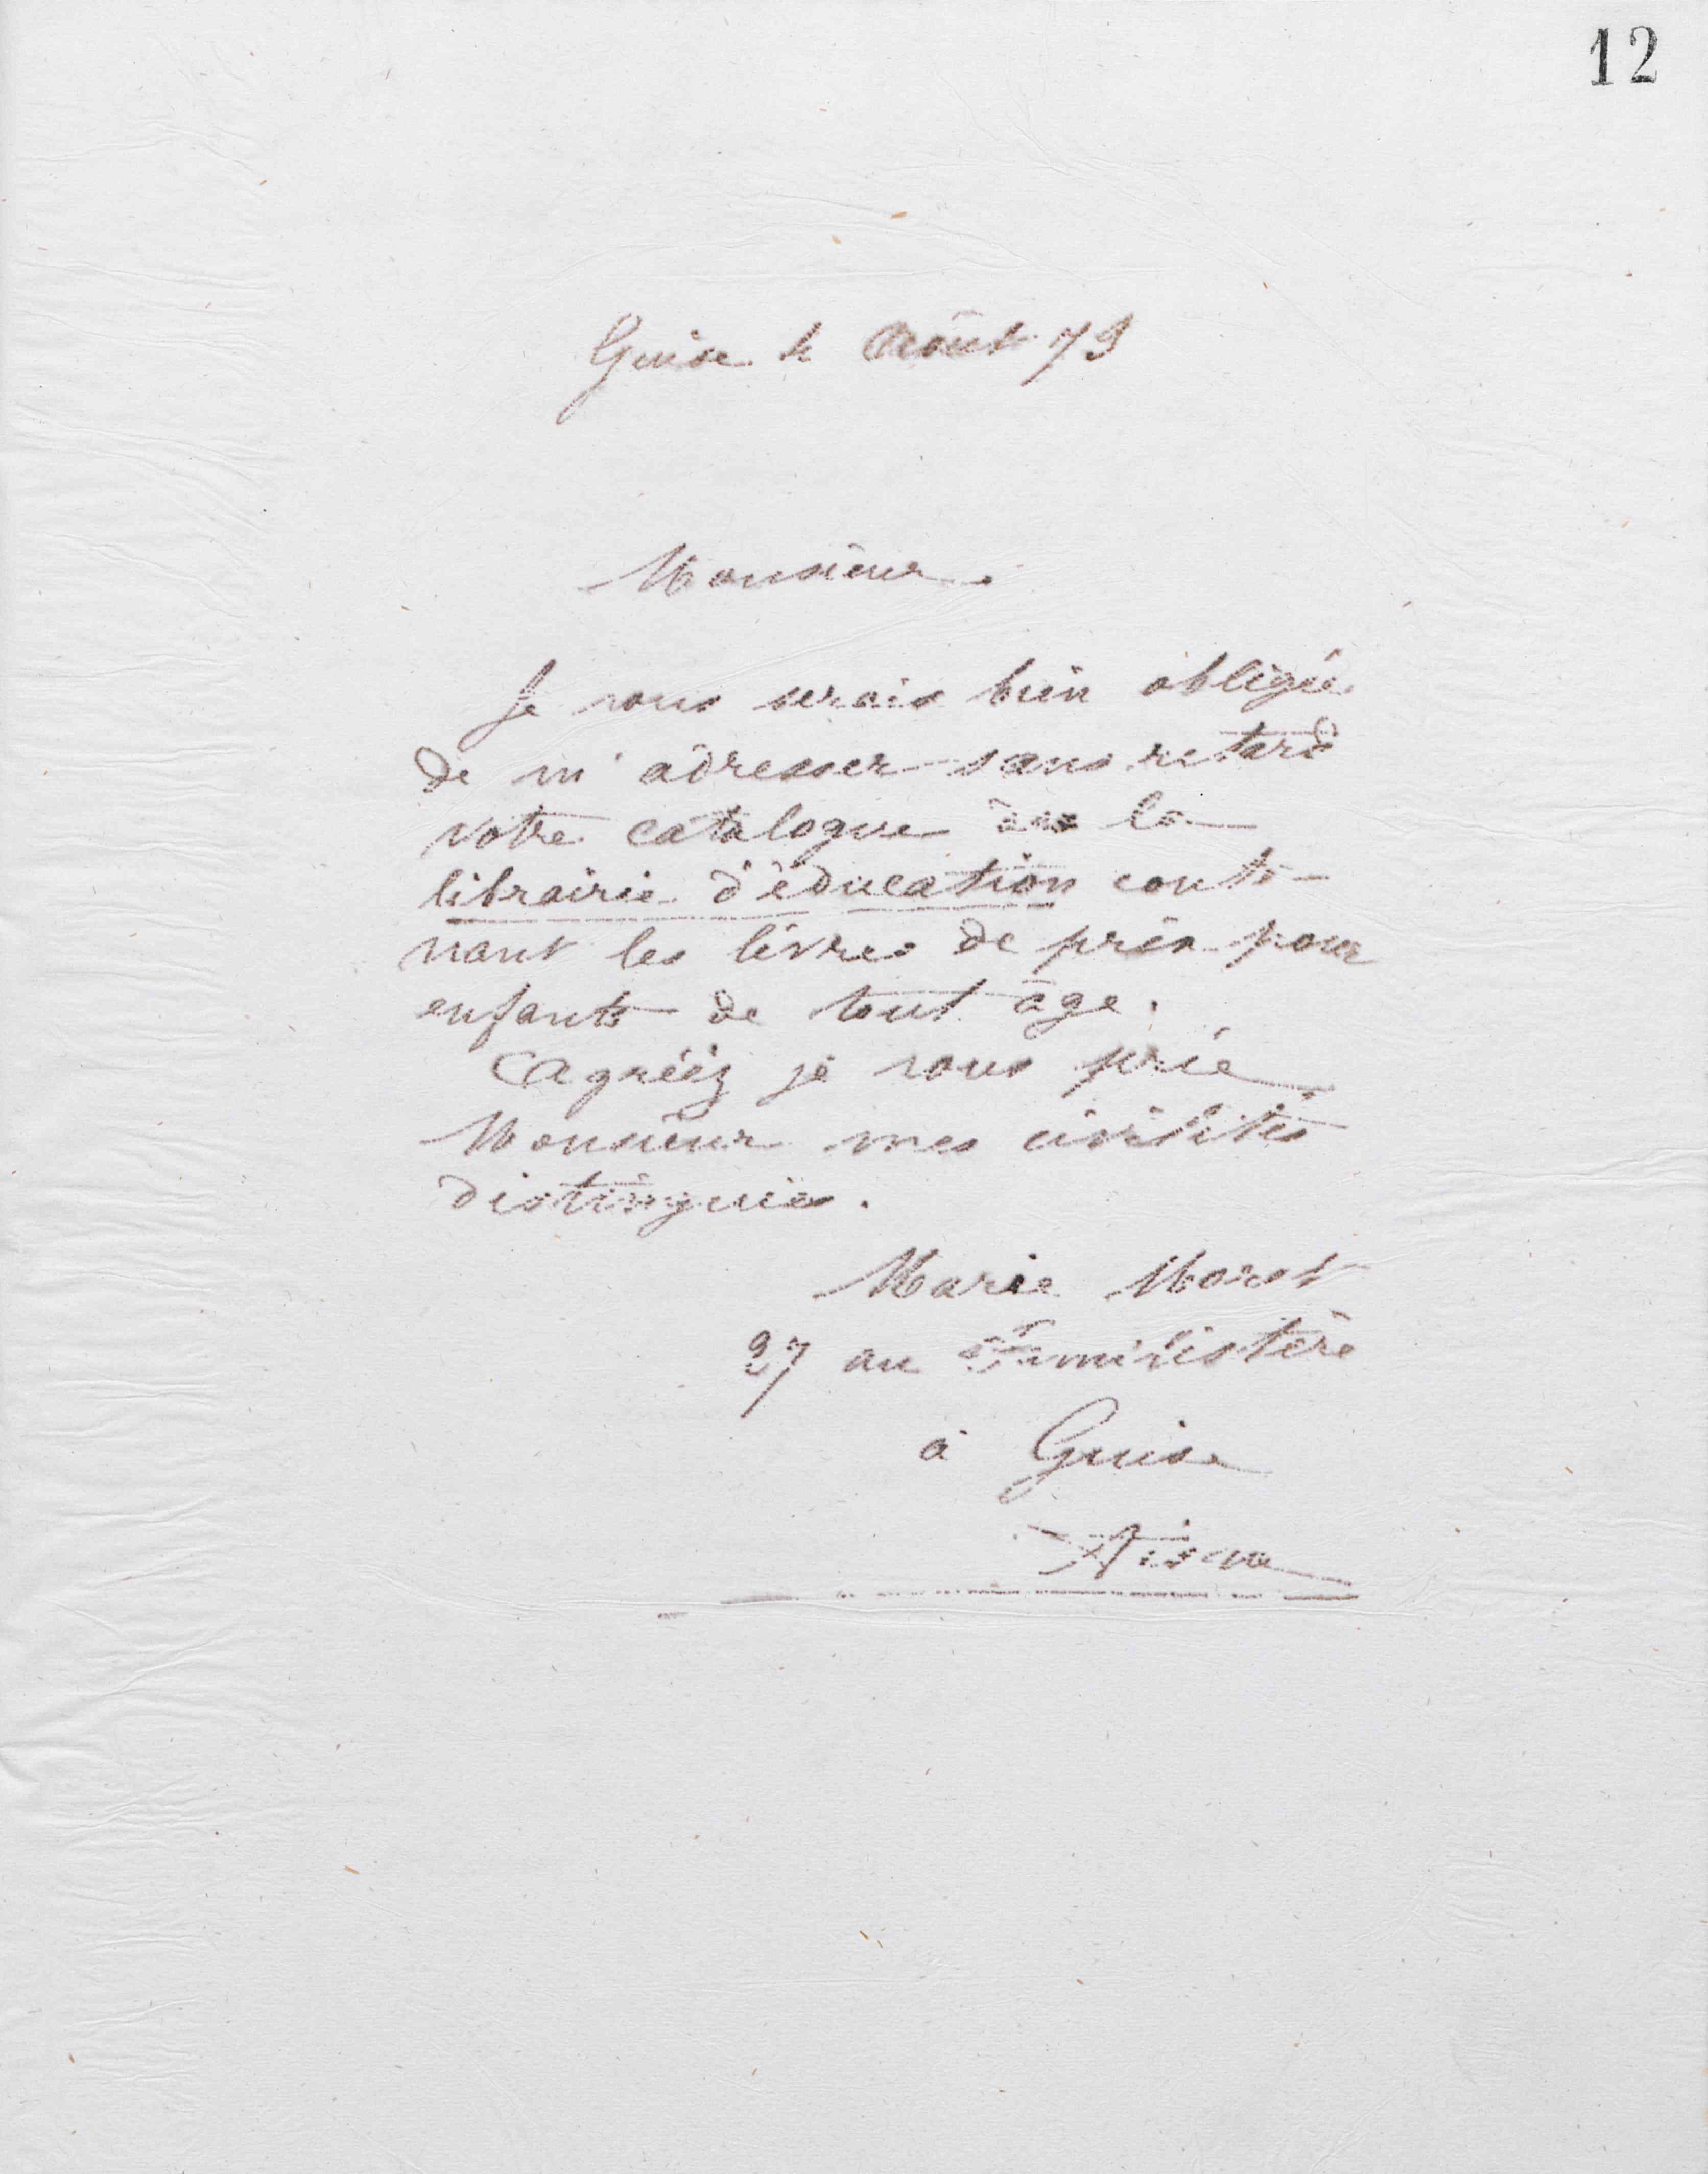 12
Guise le Août 79
Monsieur.
Je vous serais bien obligée
de m'adresser sans retard
votre catalogue de la
librairie d'éducation conte-
nant les livres de prix pour
enfants de tout âge.
Agréez je vous prie
Monsieur mes civilités
distinguées.
Marie Moret
27 au Familistère
à Guise
Aisne